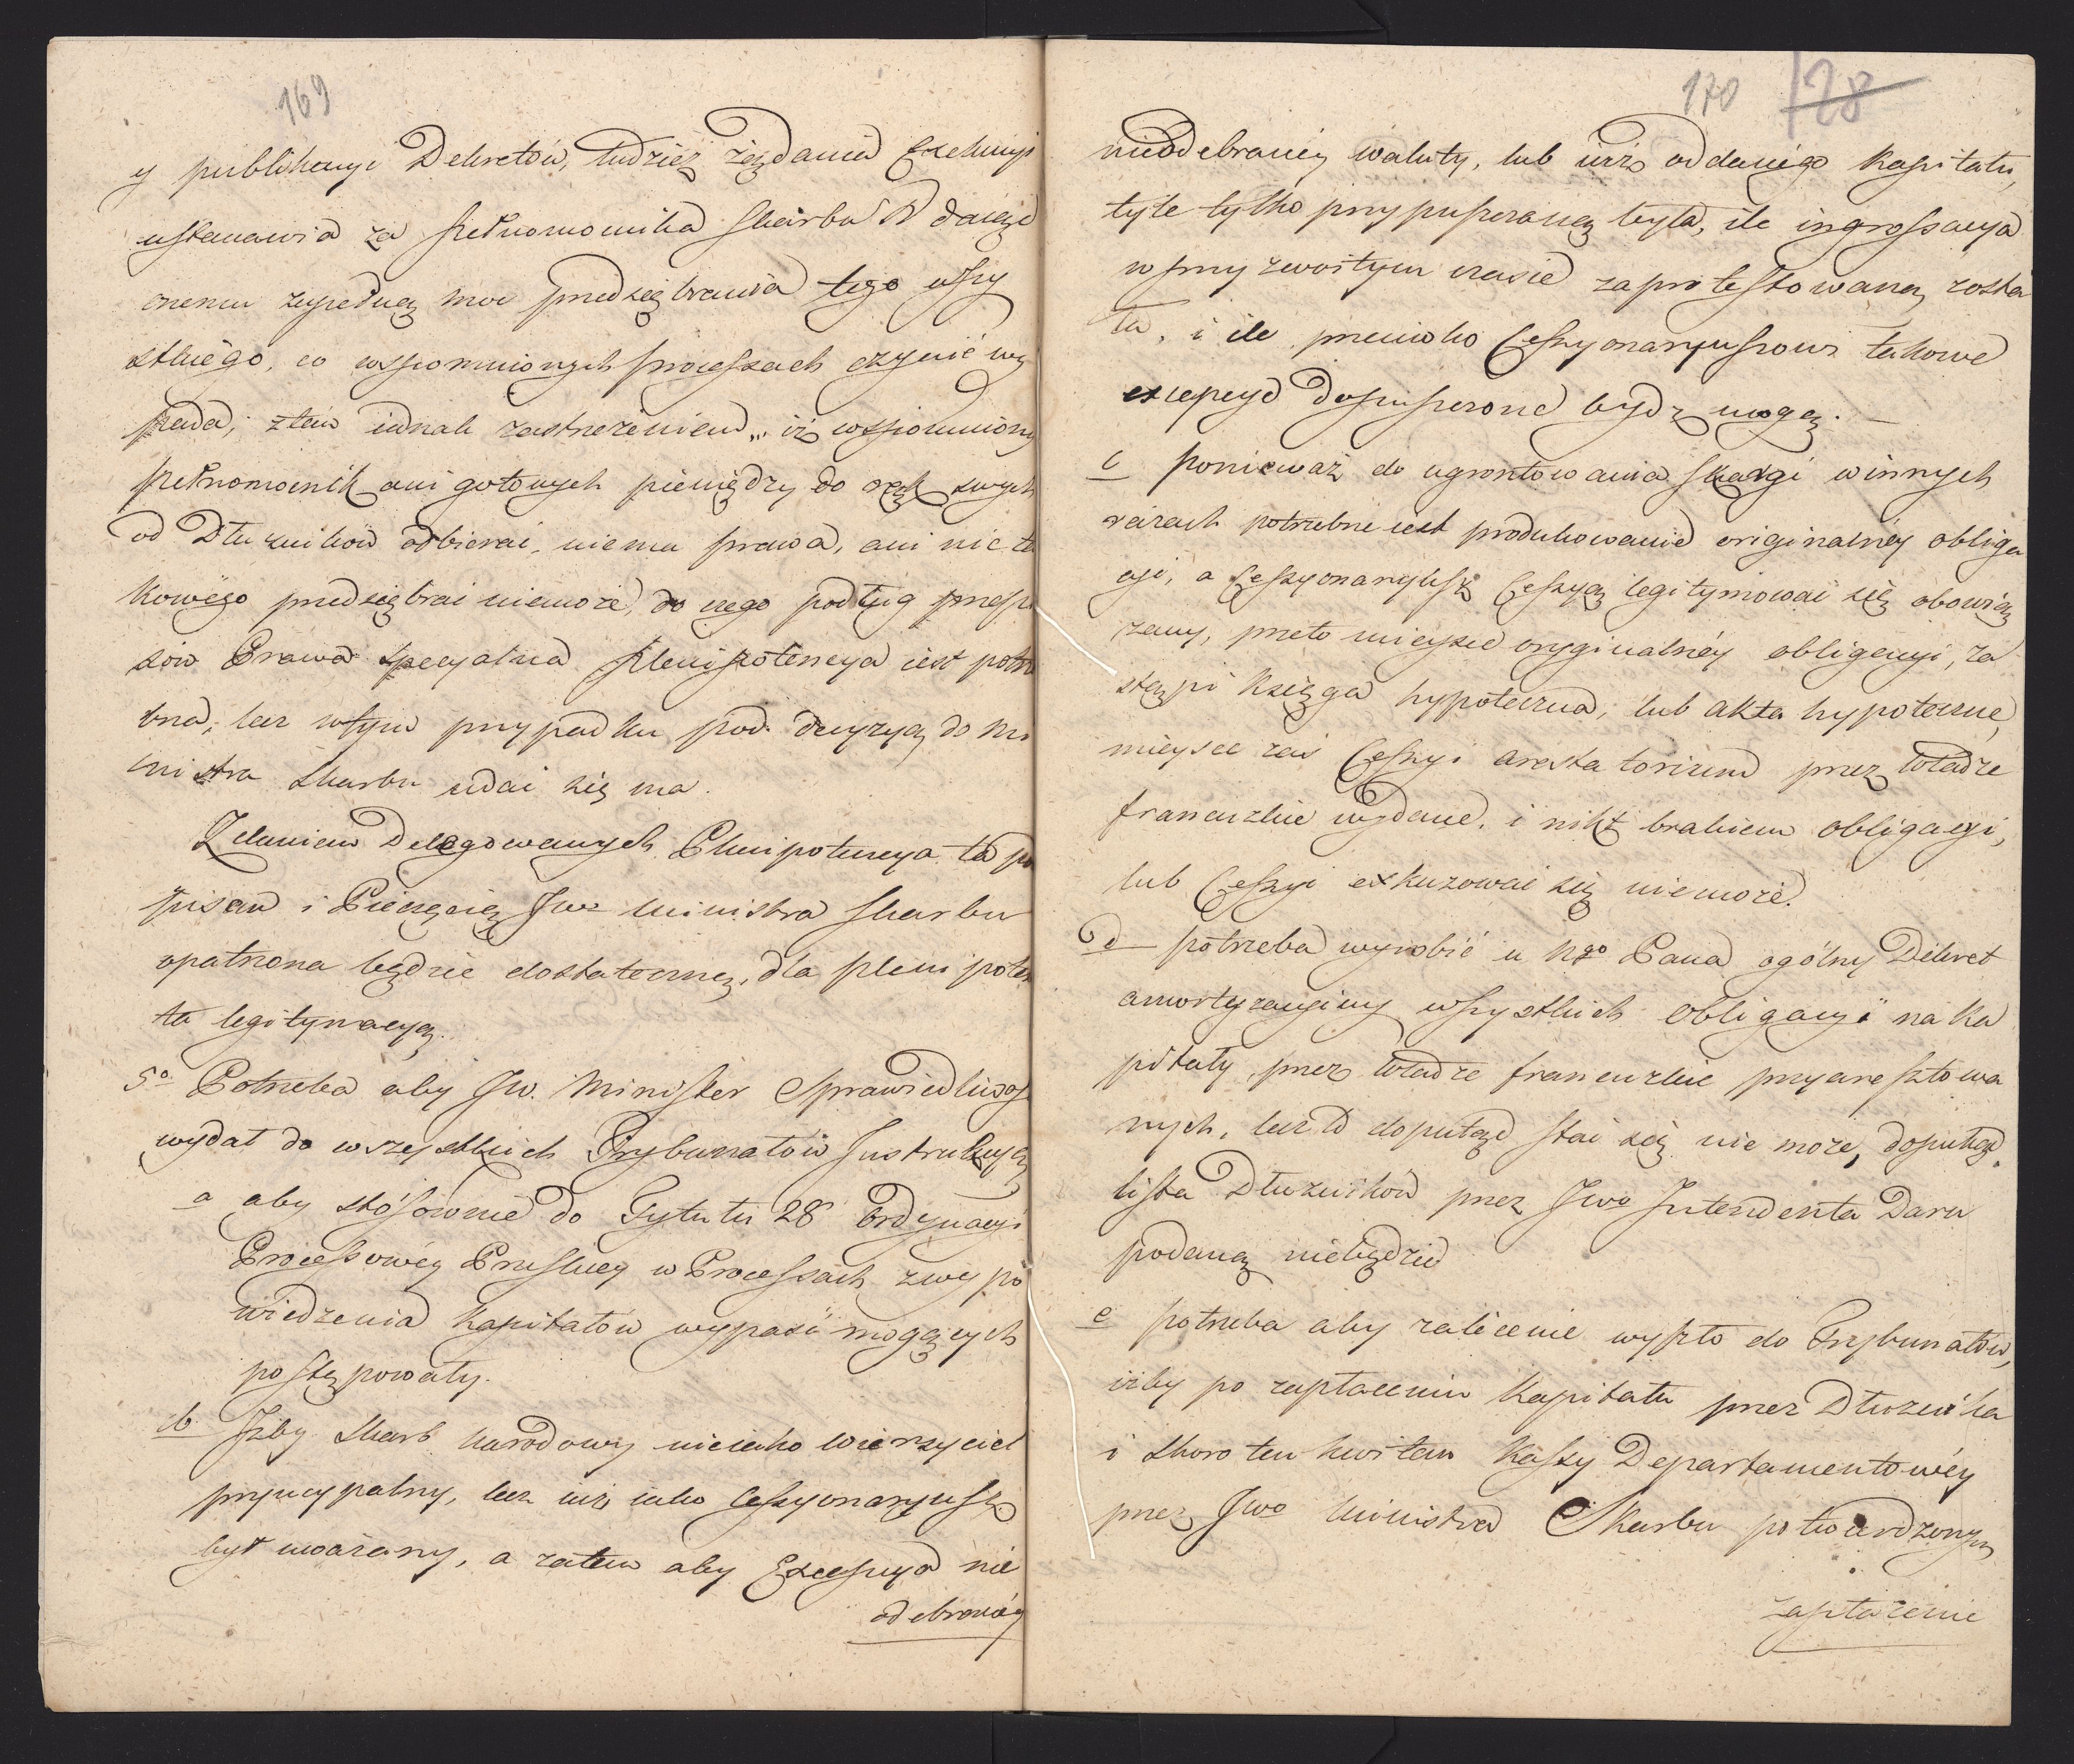 169
y publikacyi Dekretów, tudzież żądania Exekucyi
ustanawia za pełnomocnika Skarbu N daiąc
onemu zupełną moc przedsiębrania tego wszy
stkiego, co wspomnionych processach czynić wy
pada, z tem iednak zastrzeżeniem „ iż wspomniony
pełnomocnik ani gotowych pieniędzy do rąk swych
od Dłużników odbierać, niema prawa, ani nic ta
kowego przedsiębrać niemoże, do czego podług przepi
sów Prawa specyalna plenipotencya iest potrze
bna, lecz w tym przypadku pod decyzyą do Mi
nistra Skarbu udać się ma.
Zdaniem Delegowanych Plenipotencya ta po
pisem i Pieczęcią Jwo Ministra Skarbu
opatrzona będzie dostateczną, dla plenipoten
ta legitymacyą.
5o Potrzeba aby Jw. Minister Sprawiedliwoś
wydał do wszystkich Trybunałów Instrukcyą
a aby stósownie do Tytułu 28 Ordynacyi
Processowéy Pruskiey w Processach z wypo
wiedzenia Kapitałów wypaść mogących
postępowały.
b Iżby Skarb narodowy nieiako wierzyciel
pryncypalny, lecz iuż iako Cessyonaryusz
był uważany, a zatem aby Excepcya nie
odebranéy
170 128
nieodebranéy waluty, lub iuż oddanego Kapitału,
tyle tylko przypuszczaną była, ile ingrossacya
w przyzwoitym czasie zaprotestowaną zosta
ła, i ile przeciwko Cessyonaryuszowi takowe
excepcye dopuszczone bydź mogą.
c ponieważ do ugrontowania skargi w innych
razach potrzebne iest produkowanie originalnéy obliga
cyi, a Cessyonaryusz Cessyą legitymować się obowią
zany, przeto mieysce oryginalnéy obligacyi, za
stąpi Księga hypoteczna, lub akta hypoteczne,
mieysce zaś Cessyi arestatorium przez Władze
francuzkie wydane, i nikt brakiem obligacyi,
lub Cessyi exkuzować się niemoże.
d potrzeba wyrobić u Ngo Pana ogólny Dekret
amortyzacyiny wszystkich Obligacyi na Ka
pitały, przez Władze francuzkie przyaresztowa
nych, lecz to doputąd stać się nie może, doputąd
lista Dłużników przez Jwo Intendenta Daru
podaną niebędzie
e potrzeba aby zalecenie wyszło do Trybunałów,
iżby po zapłaceniu Kapitału przez Dłużnika
i skoro ten kwitem Kassy Departamentowéy
przez Jwo Ministra Skarbu potwierdzonym
zapłacenie